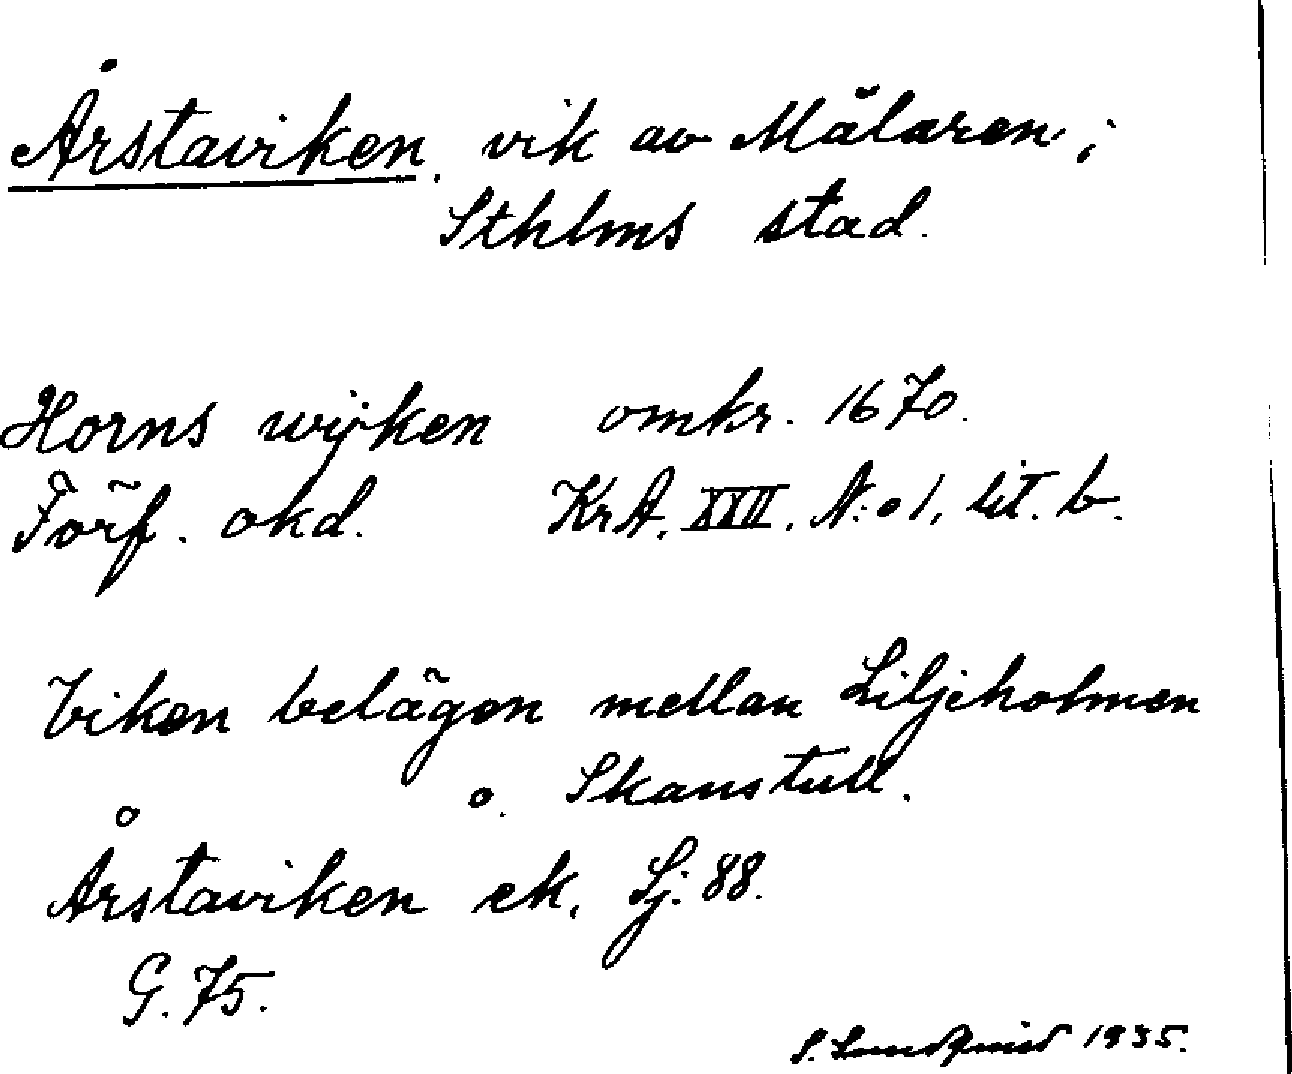 Årstaviken, vik av Mälaren,
Sthlms stad.
Horns wijken omkr. 1670.
Förf. okd. KrA, XXII. N:o 1, lit. b.
Viken belägen mellan Liljeholmen
o. Skanstull.
Årstaviken ek, Lj. 88.
G. 75.
S. Lundqvist 1935.